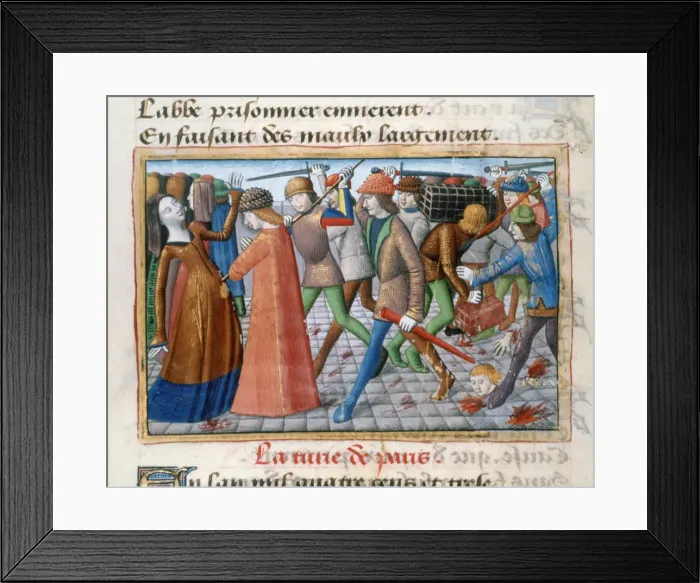 Labbe prisonnier emmerent.
En faisant des maulx largement.
La turie de paris.
En lan mil quatre cens et trese